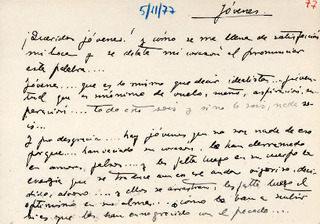 5/11/77 Jóvenes. 77
¡Queridos jóvenes! y cómo se me llena de satisfacción
mi boca y se dilata mi corazón al pronunciar
esta palabra....
Jóvenes.... que es lo mismo que decir idealistas.. juven-
tud que es sinónimo de vuelo, sueño, aspiración, su-
peración.... todo eso sois y si no lo sois, nada se-
ís...
Y por desgracia.... hay jóvenes que no son nada de eso
porque.... han vaciado su corazón. lo han derramado
en amores, falsos.... y les falta luego en su cuerpo la
energía que se traduce en un andar vigoroso, deci-
dido, .... y ellos se arrastran, les falta luego el
optimismo en su alma.. ¡cómo la van a subir
si es que la han ennegrecido con el pecado....